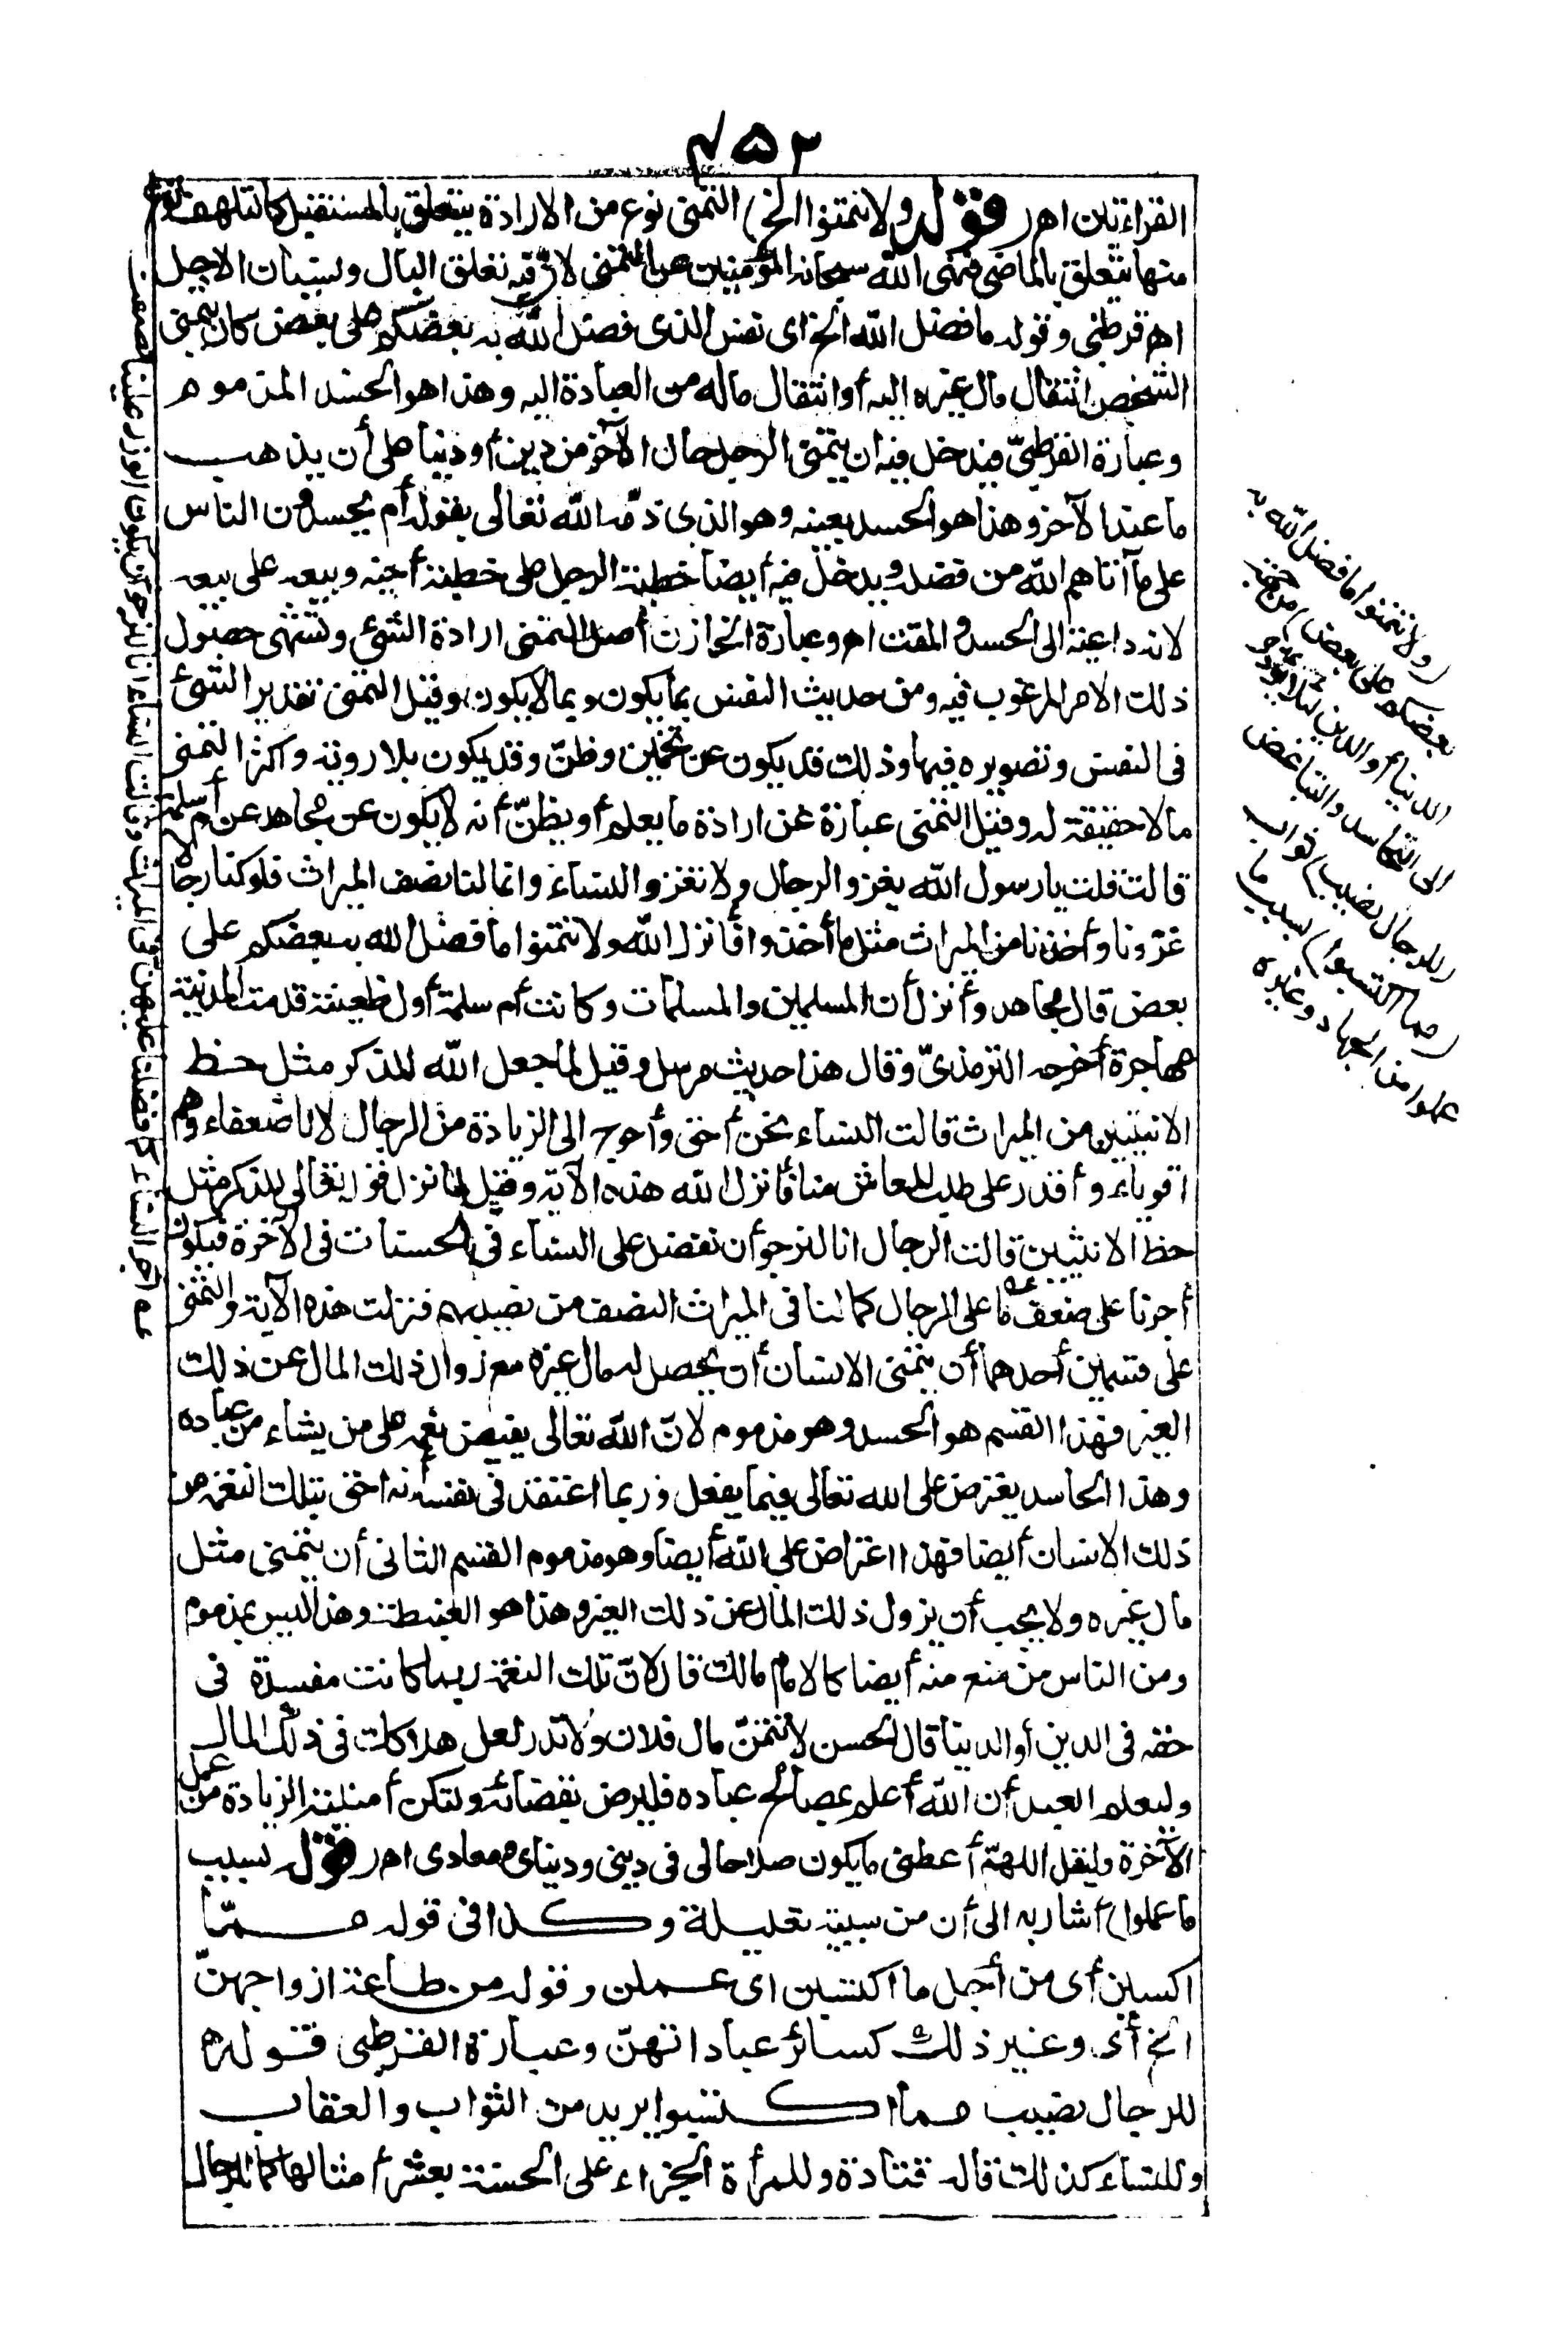 ٤٥٣
القراءتين اهـ (قوله ولا تتمنوا الخ) التمني نوع من الارادة يتعلق بالمستقبل كالتلهف نوع
منها يتعلق بالماضي فنهى الله سبحانه المؤمنين عن التمني لان فيه تعلق البال ونسيان الاجل
اهـ قرطبي وقوله ما فضل الله الخ اى نفس الذى فضل الله به بعضكم على بعض كان يتمنى
الشخص انتقال مال غيره اليه أو انتقال ماله من العبادة اليه وهذا هو الحسد المذموم
وعبارة القرطبيّ فيدخل فيه ان يتمنى الرجل حال الآخر من دين أو دنيا على أن يذهب
ما عند الآخر وهذا هو الحسد بعينه وهو الذى ذمّه الله تعالى بقوله أم يحسدون الناس
على ما آتاهم الله من فضله ويدخل فيه أيضا خطبة الرجل على خطبة أخيه وبيعه على بيعه
لانه داعية الى الحسد والمقت اهـ وعبارة الخازن أصل التمنى ارادة الشئ وتشهى حصول
ذلك الامر المرغوب فيه ومن حديث النفس بما يكون وبما لا يكون وقيل التمنى تقدير الشئ
فى النفس وتصويره فيها وذلك قد يكون عن تخمين وظنّ وقد يكون بلا روية واكثر التمنى
مالا حقيقة له وقيل التمنى عبارة عن ارادة ما يعلم أو يظنّ أنه لا يكون عن مجاهد عن أم سلمة
قالت قلت يا رسول الله يغزو الرجال ولا تغزو النساء وانما لنا نصف الميراث فلو كنا رجالا
غزونا وأخذنا من الميراث مثل ما أخذوا فأنزل الله ولا تتمنوا ما فضل الله به بعضكم على
بعض قال مجاهد وأنزل أن المسلمين والمسلمات وكانت أم سلمة أول ظعينة قدمت المدينة
مهاجرة أخرجه الترمذىّ وقال هذا حديث مرسل وقيل لما جعل الله للذكر مثل حظ
الانثيين من الميراث قالت النساء نحن أحق وأحوج الى الزيادة من الرجال لانا ضعفاء وهم
اقوياء وأقدر على طلب المعاش منا فأنزل الله هذه الآية وقيل لما نزل قوله تعالى للذكر مثل
حظ الانثيين قالت الرجال انا لنرجو أن نفضل على النساء فى الحسنات فى الآخرة فيكون
أجرنا على ضعف ما على الرجال كما لنا فى الميراث النصف من نصيبهم فنزلت هذه الآية والتمنى
على قسمين أحدهما أن يتمنى الانسان أن يحصل له مال غيره مع زوال ذلك المال عن ذلك
الغير فهذا القسم هو الحسد وهو مذموم لانّ الله تعالى يفيض نعمه على من يشاء من عباده
وهذا الحاسد يعترض على الله تعالى فيما يفعل وربما اعتقد فى نفسه أنه احق بتلك النعم من
ذلك الانسان أيضا فهذا اعتراض على الله أيضا وهو مذموم القسم الثانى أن يتمنى مثل
مال غيره ولا يحب أن يزول ذلك المال عن ذلك الغير وهذا هو الغبطة وهذا ليس بمذموم
ومن الناس من منع منه أيضا كالامام مالك قال لانّ تلك النعمة ربما كانت مفسدة فى
حقه فى الدين أو الدنيا قال الحسن لا تتمنّ مال فلان ولا تدر لعل هلاكك فى ذلك المال
وليعلم العبد أن الله أعلم بمصالح عباده فليرض بقضائه ولتكن أمنيته الزيادة من عمل
الآخرة وليقل اللهمّ أعطنى ما يكون صلاحا لى فى دينى ودنياى ومعادى اهـ (قوله بسبب
ما عملوا) أشار به الى أن من سببية تعليلية وكذا فى قوله ممّا
اكتسبن أى من أجل ما اكتسبن اى عملن وقوله من طاعة ازواجهنّ
الخ أى وغير ذلك كسائر عباداتهنّ وعبارة القرطبى قوله
للرجال نصيب مما اكتسبوا يريد من الثواب والعقاب
وللنساء كذلك قاله قتادة وللمرأة الجزاء على الحسنة بعشر أمثالها كما للرجال
(ولا تتمنوا ما فضل الله به
بعضكم على بعض) من جهة
الدنيا أو الدين لئلا يؤدى
الى التحاسد والتباغض
(للرجال نصيب) ثواب
(مما اكتسبوا) بسبب ما
عملوا من الجهاد وغيره